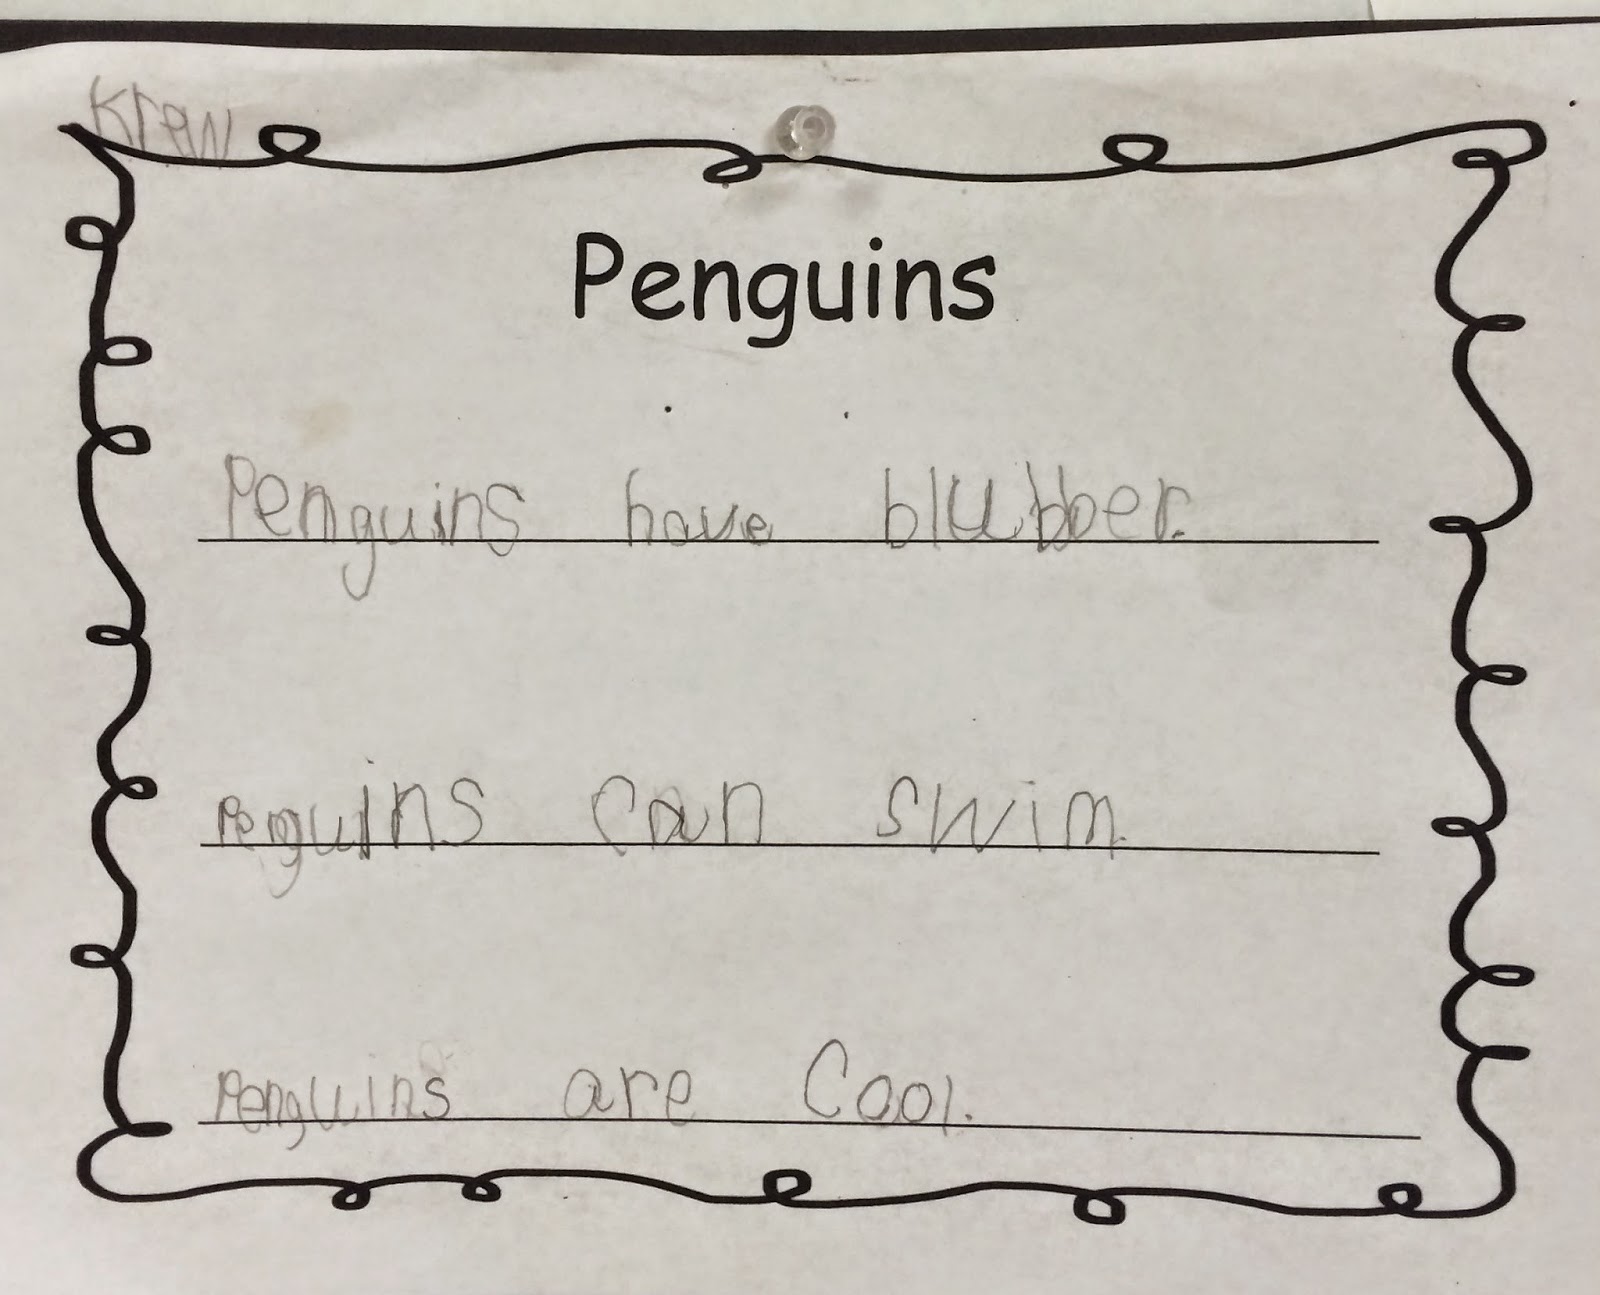 Krew
Penguins
Penguins have blubber.
Penguins can swim.
Penguins are Cool.